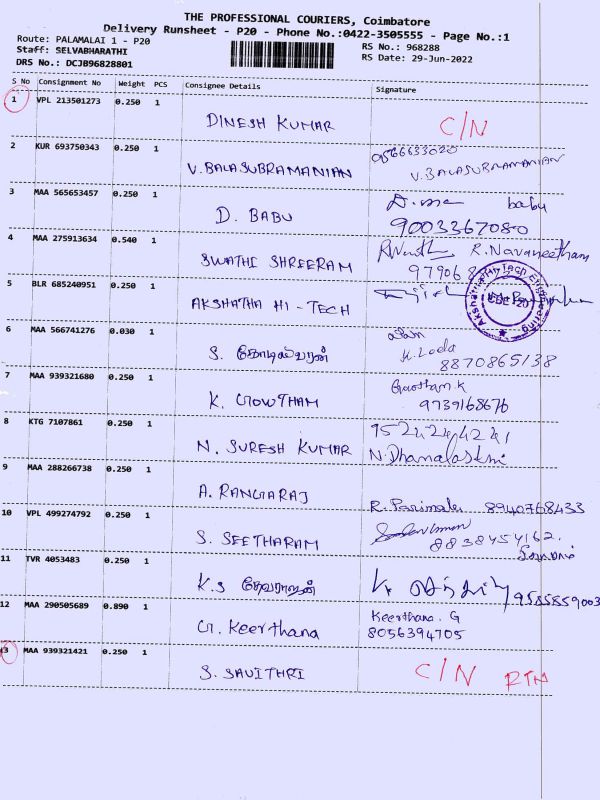 THE PROFESSIONAL COURIERS, Coimbatore
Delivery Runsheet - P20 - Phone No.:0422-3505555 - Page No.:1
Route: PALAMALAI 1 - P20 RS No.: 968288
Staff: SELVABHARATHI RS Date: 29-Jun-2022
DRS No.: DCJB96828801
S No Consignment No Weight PCS Consignee Details Signature
1 VPL 213501273 0.250 1
DINESH KUMAR C/N
2 KUR 693750343 0.250 1 9566633020
V. BALASUBRAMANIAN V. BALASUBRAMANIAN
3 MAA 565653457 0.250 1 babu
D. BABU 9003367080
4 MAA 275913634 0.540 1 R. Navaneetham
SWATHI SHREERAM 979068
5 BLR 685240951 0.250 1
AKSHATHA HI - TECH
Tech Engineering
6 MAA 566741276 0.030 1
S. 8870865138
7 MAA 939321680 0.250 1 Gowtham.K
K. GOWTHAM 9739168676
8 KTG 7107861 0.250 1
N. SURESH KUMAR N. Dhanalakshmi
9 MAA 288266738 0.250 1
A. RANGARAJ R. Parimala 8940768433
10 VPL 499274792 0.250 1
S. SEETHARAM 8838454162.
11 TVR 4053483 0.250 1
K.S தேவராஜன் 9585859003
12 MAA 290505689 0.890 1 Keerthana. G
G. Keerthana 8056394705
13 MAA 939321421 0.250 1
S. SAVITHRI C/N RTN